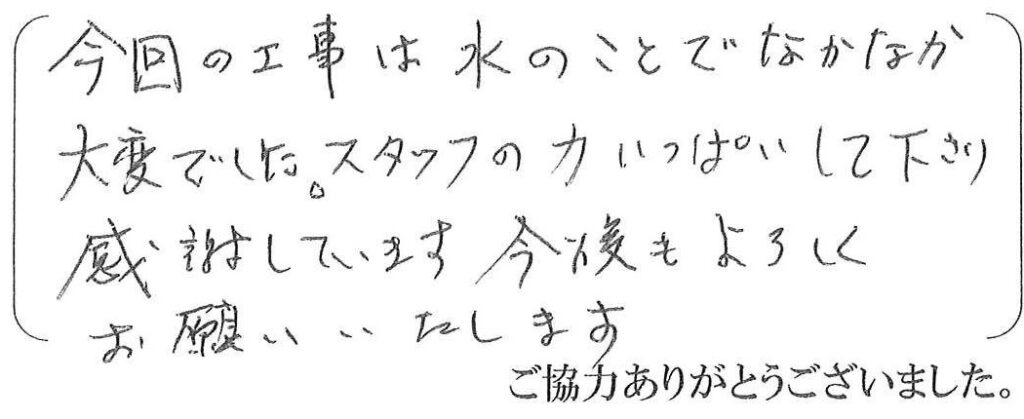 今回の工事は水のことでなかなか
大変でした。スタッフの力いっぱいして下さり
感謝しています 今後もよろしく
お願いいたします
ご協力ありがとうございました。